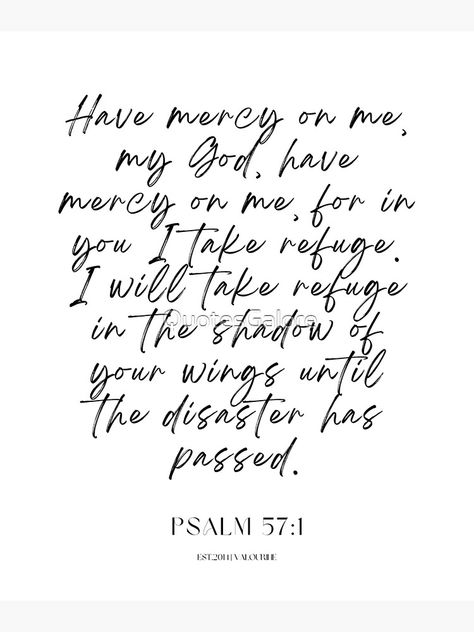 Have mercy on me,
my God, have
mercy on me, for in
you I take refuge.
I will take refuge
in the shadow of
QuotesGalore
your wings until
the disaster has
passed.
PSALM 57:1
EST.2014 | VALOURIHE